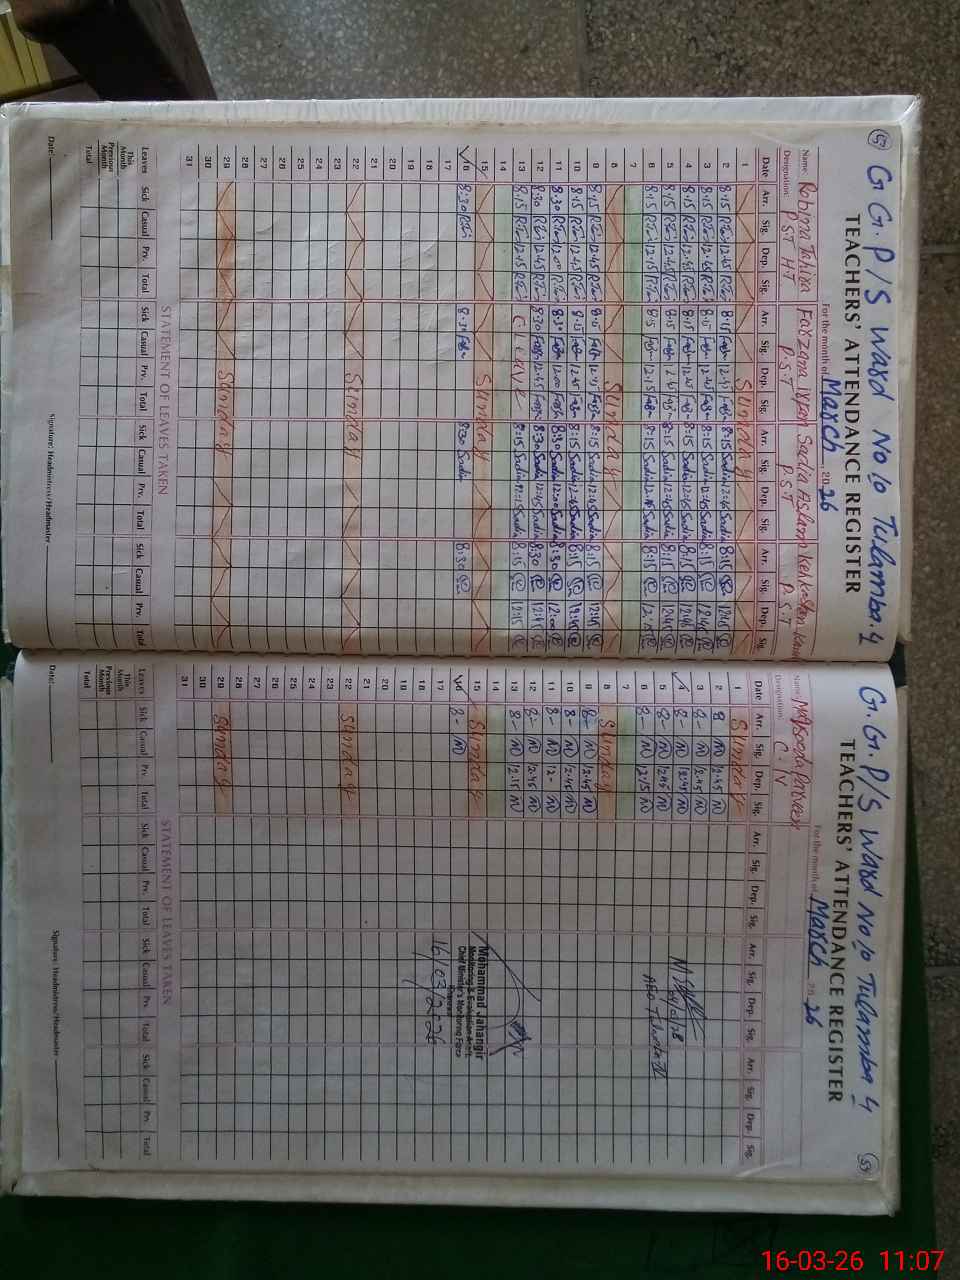 G.G.P/S Ward No 10 Tulamba.4
TEACHERS' ATTENDANCE REGISTER
For the month of March, 2026
Name: Robina Tahira Farzana Sadia Aslam
Designation: P.S.T H.T P.S.T P.S.T P.S.T
Date Arr. Sig. Dep. Sig. Arr. Sig. Dep. Sig. Arr. Sig. Dep. Sig. Arr. Sig. Dep. Sig.
1 Sunday
2 8:15 12:45 8:15 8:15 Sadia 12:45 Sadia 8:15
3 8:15 12:45 8:15 12:45 8:15 Sadia 12:45 Sadia 8:15 12:45
4 8:15 12:45 8:15 12:45 8:15 Sadia 12:45 Sadia 8:15 12:45
5 8:15 12:45 8:15 12:45 8:15 Sadia 12:45 Sadia 8:15 12:45
6 8:15 12:15 8:15 12:15 8:15 Sadia 12:15 Sadia 8:15 12:15
7
8 Sunday
9 8:15 12:45 8:15 12:45 8:15 Sadia 12:45 Sadia 8:15 12:45
10 8:15 12:45 8:15 12:45 8:15 Sadia 12:45 Sadia 8:15 12:45
11 8:30 12:00 8:30 12:00 8:30 Sadia 12:00 Sadia 8:30 12:00
12 8:30 12:45 8:30 12:45 8:30 Sadia 12:45 Sadia 8:30 12:45
13 8:15 12:15 C Leave 8:15 Sadia 12:15 Sadia 8:15 12:15
14
15 Sunday
16 8:30 8:30 8:30 Sadia 8:30
17
18
19
20
21
22 Sunday
23
24
25
26
27
28
29 Sunday
30
31
STATEMENT OF LEAVES TAKEN
Leaves Sick Casual Prv. Total Sick Casual Prv. Total Sick Casual Prv. Total Sick Casual Prv. Total
This Month
Previous Month
Total
Date: Signature: Headmistress/Headmaster
G.G.P/S Ward No 10 Tulamba 4
54
TEACHERS' ATTENDANCE REGISTER
For the month of March 2026
Name: Maqsooda Parveen
Designation: C.IV
Date Arr. Sig. Dep. Sig. Arr. Sig. Dep. Sig. Arr. Sig. Dep. Sig. Arr. Sig. Dep. Sig.
1 Sunday
2 8 12:45
3 8- 12:45
4 8- 12:45
5 8- 12:45
6 8- 12:15
7
8 Sunday
9 8- 12:45
10 8- 12:45
11 8- 12-
12 8- 12:45
13 8- 12:15
14
15 Sunday
16 8-
17
18
19
20
21
22 Sunday
23
24
25
26
27
28
29 Sunday
30
31
AEO
Mohammad Jahangir
Monitoring & Evaluation Assit.
Chief Minister's Monitoring Force
Khanewal
16/03/2026
STATEMENT OF LEAVES TAKEN
Leaves Sick Casual Prv. Total Sick Casual Prv. Total Sick Casual Prv. Total Sick Casual Prv. Total
This Month
Previous Month
Total
Date: Signature: Headmistress/Headmaster
16-03-26 11:07